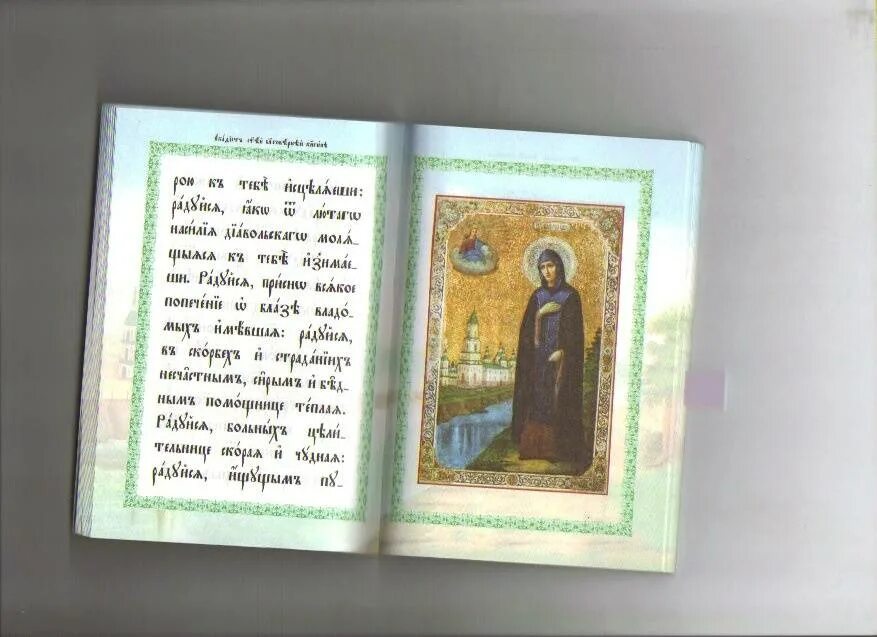 рою къ тебѣ и҆сцѣлѧ́еши:
ра́дуйсѧ, ꙗ҆́кѡ ѿ лю́тагѡ
наси́лїѧ дїа́вольскагѡ молѧ́-
щыѧсѧ къ тебѣ̀ и҆з̾има́е-
ши. Ра́дуйсѧ, при́снѡ всѧ́кое
попече́нїе ѡ҆ бла́зѣ владо́-
мыхъ и҆мѣ́вшаѧ: ра́дуйсѧ,
въ ско́рбехъ и҆ страда́нїихъ
несча́стнымъ, си̑рымъ и҆ бѣ̑д-
нымъ помо́щнице те́плаѧ.
Ра́дуйсѧ, больны́хъ цѣли́-
тельнице ско́раѧ и҆ чу́днаѧ:
ра́дуйсѧ, и҆́щущымъ пу-